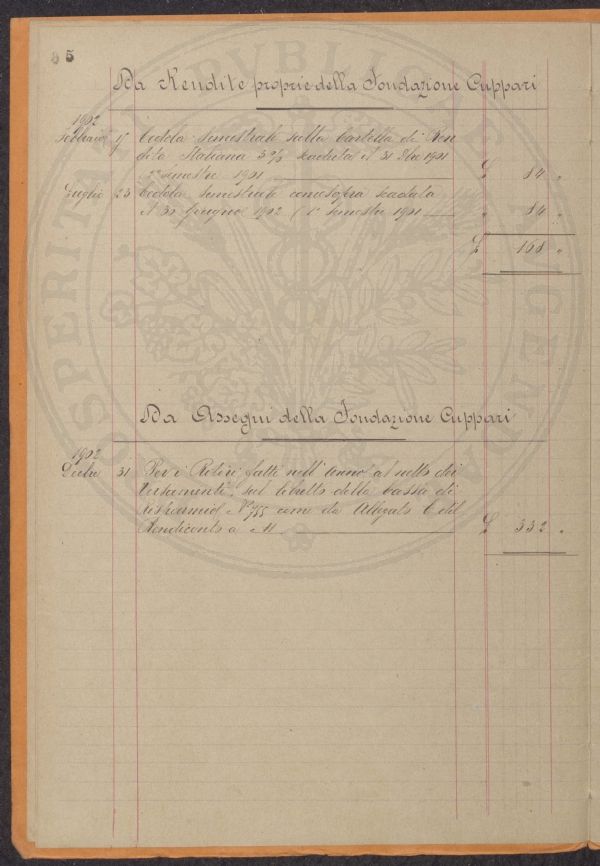 5
Da Rendite proprie della Fondazione Cuppari
1902
Febbraio 17 Cedola semestrale sulla Cartella di Ren
dita Italiana 5% scaduta il 31 Dbe 1901
2° semestre 1901 £ 84 "
Luglio 23 Cedola semestrale comesopra scaduta
il 30 Giugno 1902 (1° semestre 1901 " 84 "
£ 168 "
Da Assegni della Fondazione Cuppari
1902
Dicbre 31 Per i Ritiri fatti nell'anno al netto dei
Versamenti, sul libretto della Cassa di
risparmio N° 755 come da Allegato C del
Rendiconto a M £ 332 "
PVBLICAE
PROSPERITATI
AVGENDAE